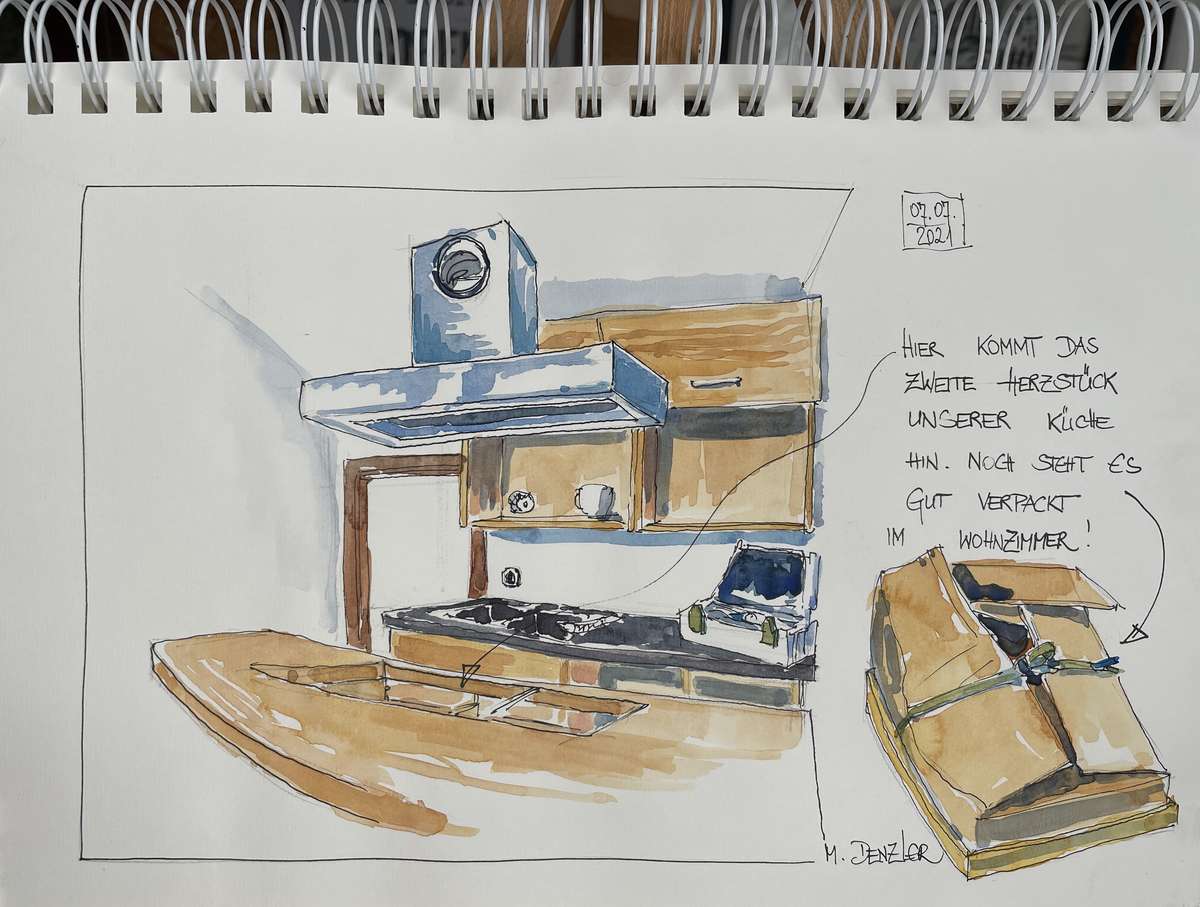 07.07.
2021
HIER KOMMT DAS
ZWEITE HERZSTÜCK
UNSERER KÜCHE
HIN. NOCH STEHT ES
GUT VERPACKT
IM WOHNZIMMER!
M. DENZLER